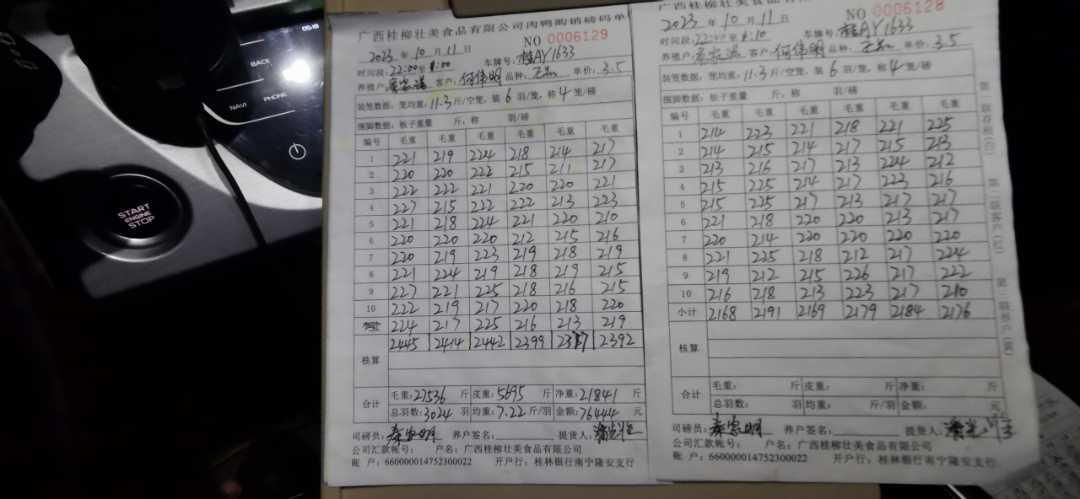 05:18
BACK
NAVI PHONE
START
ENGINE
STOP
广西桂柳壮美食品有限公司肉鸭购销磅码单
NO 0006129
2023 年 10 月 11 日 车牌号: 桂AY1633
时间段: 22:00 至
养殖户: 客户: 何伟明 品种: 单价: 3.5
装笼数据, 笼均重: 11.3 斤/空笼, 装 6 羽/笼, 称 4 笼/磅
板子重量 斤, 称 羽/磅
编号 毛重 毛重 毛重 毛重 毛重 毛重
1 221 219 224 218 214 217
2 220 220 222 215 211 217
3 222 222 221 220 220 221
4 227 215 222 222 213 223
5 221 218 224 221 220 210
6 220 220 220 212 215 216
7 220 219 223 219 218 219
8 221 224 219 218 219 215
9 227 221 225 218 216 215
10 222 219 217 220 218 220
224 217 225 216 213 219
2445 2414 2442 2399 2392
核算
合计 毛重: 27536 斤 皮重: 5695 斤 净重: 21841 斤
总羽数: 3024 羽 均重: 7.22 斤/羽 金额: 76444 元
司磅员: 养户签名: 提货人:
公司汇款账号: 户名: 广西桂柳壮美食品有限公司
账 户: 660000014752300022 开户行: 桂林银行南宁隆安支行
广西桂柳壮美食品有限公
NO 0006128
2023 年 10 月 11 日 车牌号: 桂AY1633
时间段: 22:00 至
养殖户: 客户: 何伟明 品种: 单价: 3.5
装笼数据, 笼均重: 11.3 斤/空笼, 装 6 羽/笼, 称 4 笼/磅
板子重量 斤, 称 羽/磅
编号 毛重 毛重 毛重 毛重 毛重 毛重
1 214 223 221 218 221 225
2 214 215 214 217 215 213
3 213 216 217 213 224 212
4 215 225 214 217 223 216
5 215 225 217 213 217 217
6 221 218 220 220 213 217
7 220 214 220 220 220 220
8 221 225 218 212 217 224
9 219 212 215 226 217 222
10 216 218 213 223 217 210
小计 2168 2191 2169 2179 2184 2176
核算
合计 毛重: 斤 皮重: 斤 净重: 斤
总羽数: 羽 均重: 斤/羽 金额: 元
司磅员: 养户签名: 提货人:
公司汇款账号: 户名: 广西桂柳壮美食品有限公司
账 户: 660000014752300022 开户行: 桂林银行南宁隆安支行